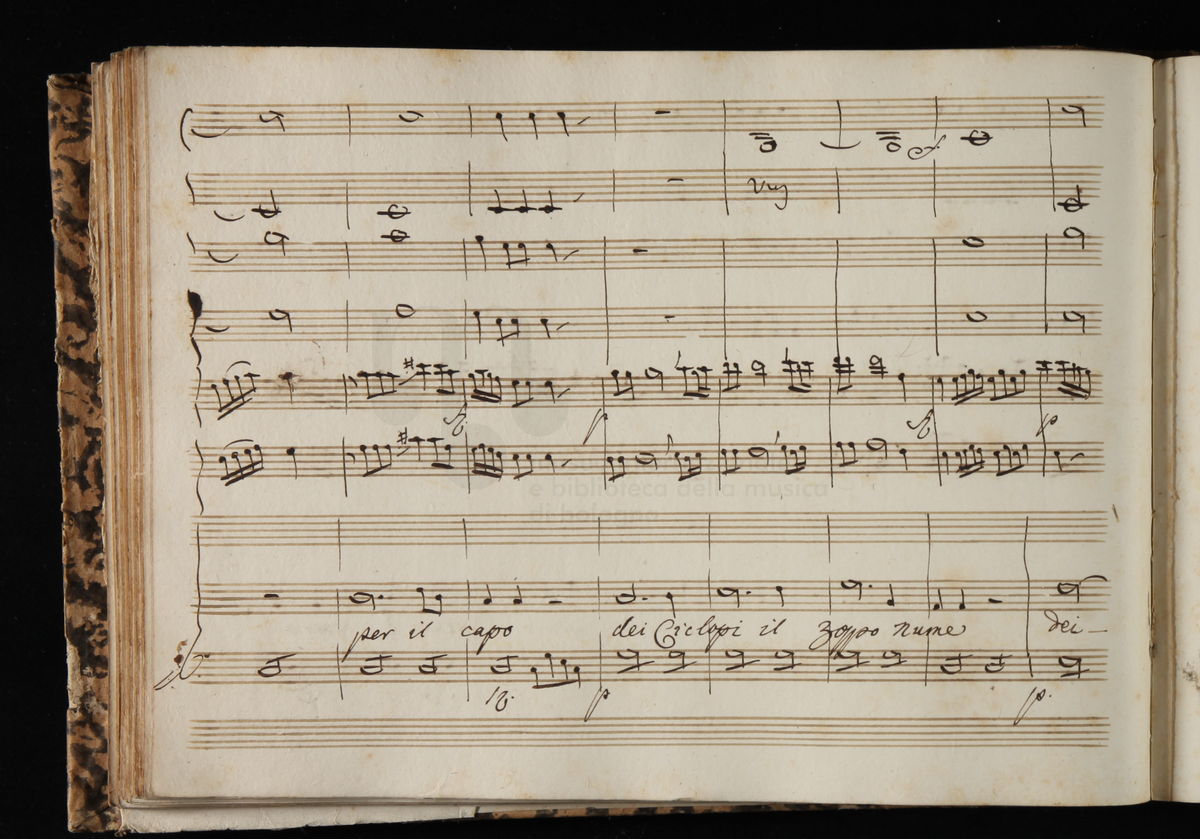 per il capo dei Ciclopi il zoppo nume dei
e biblioteca della musica
di bologna